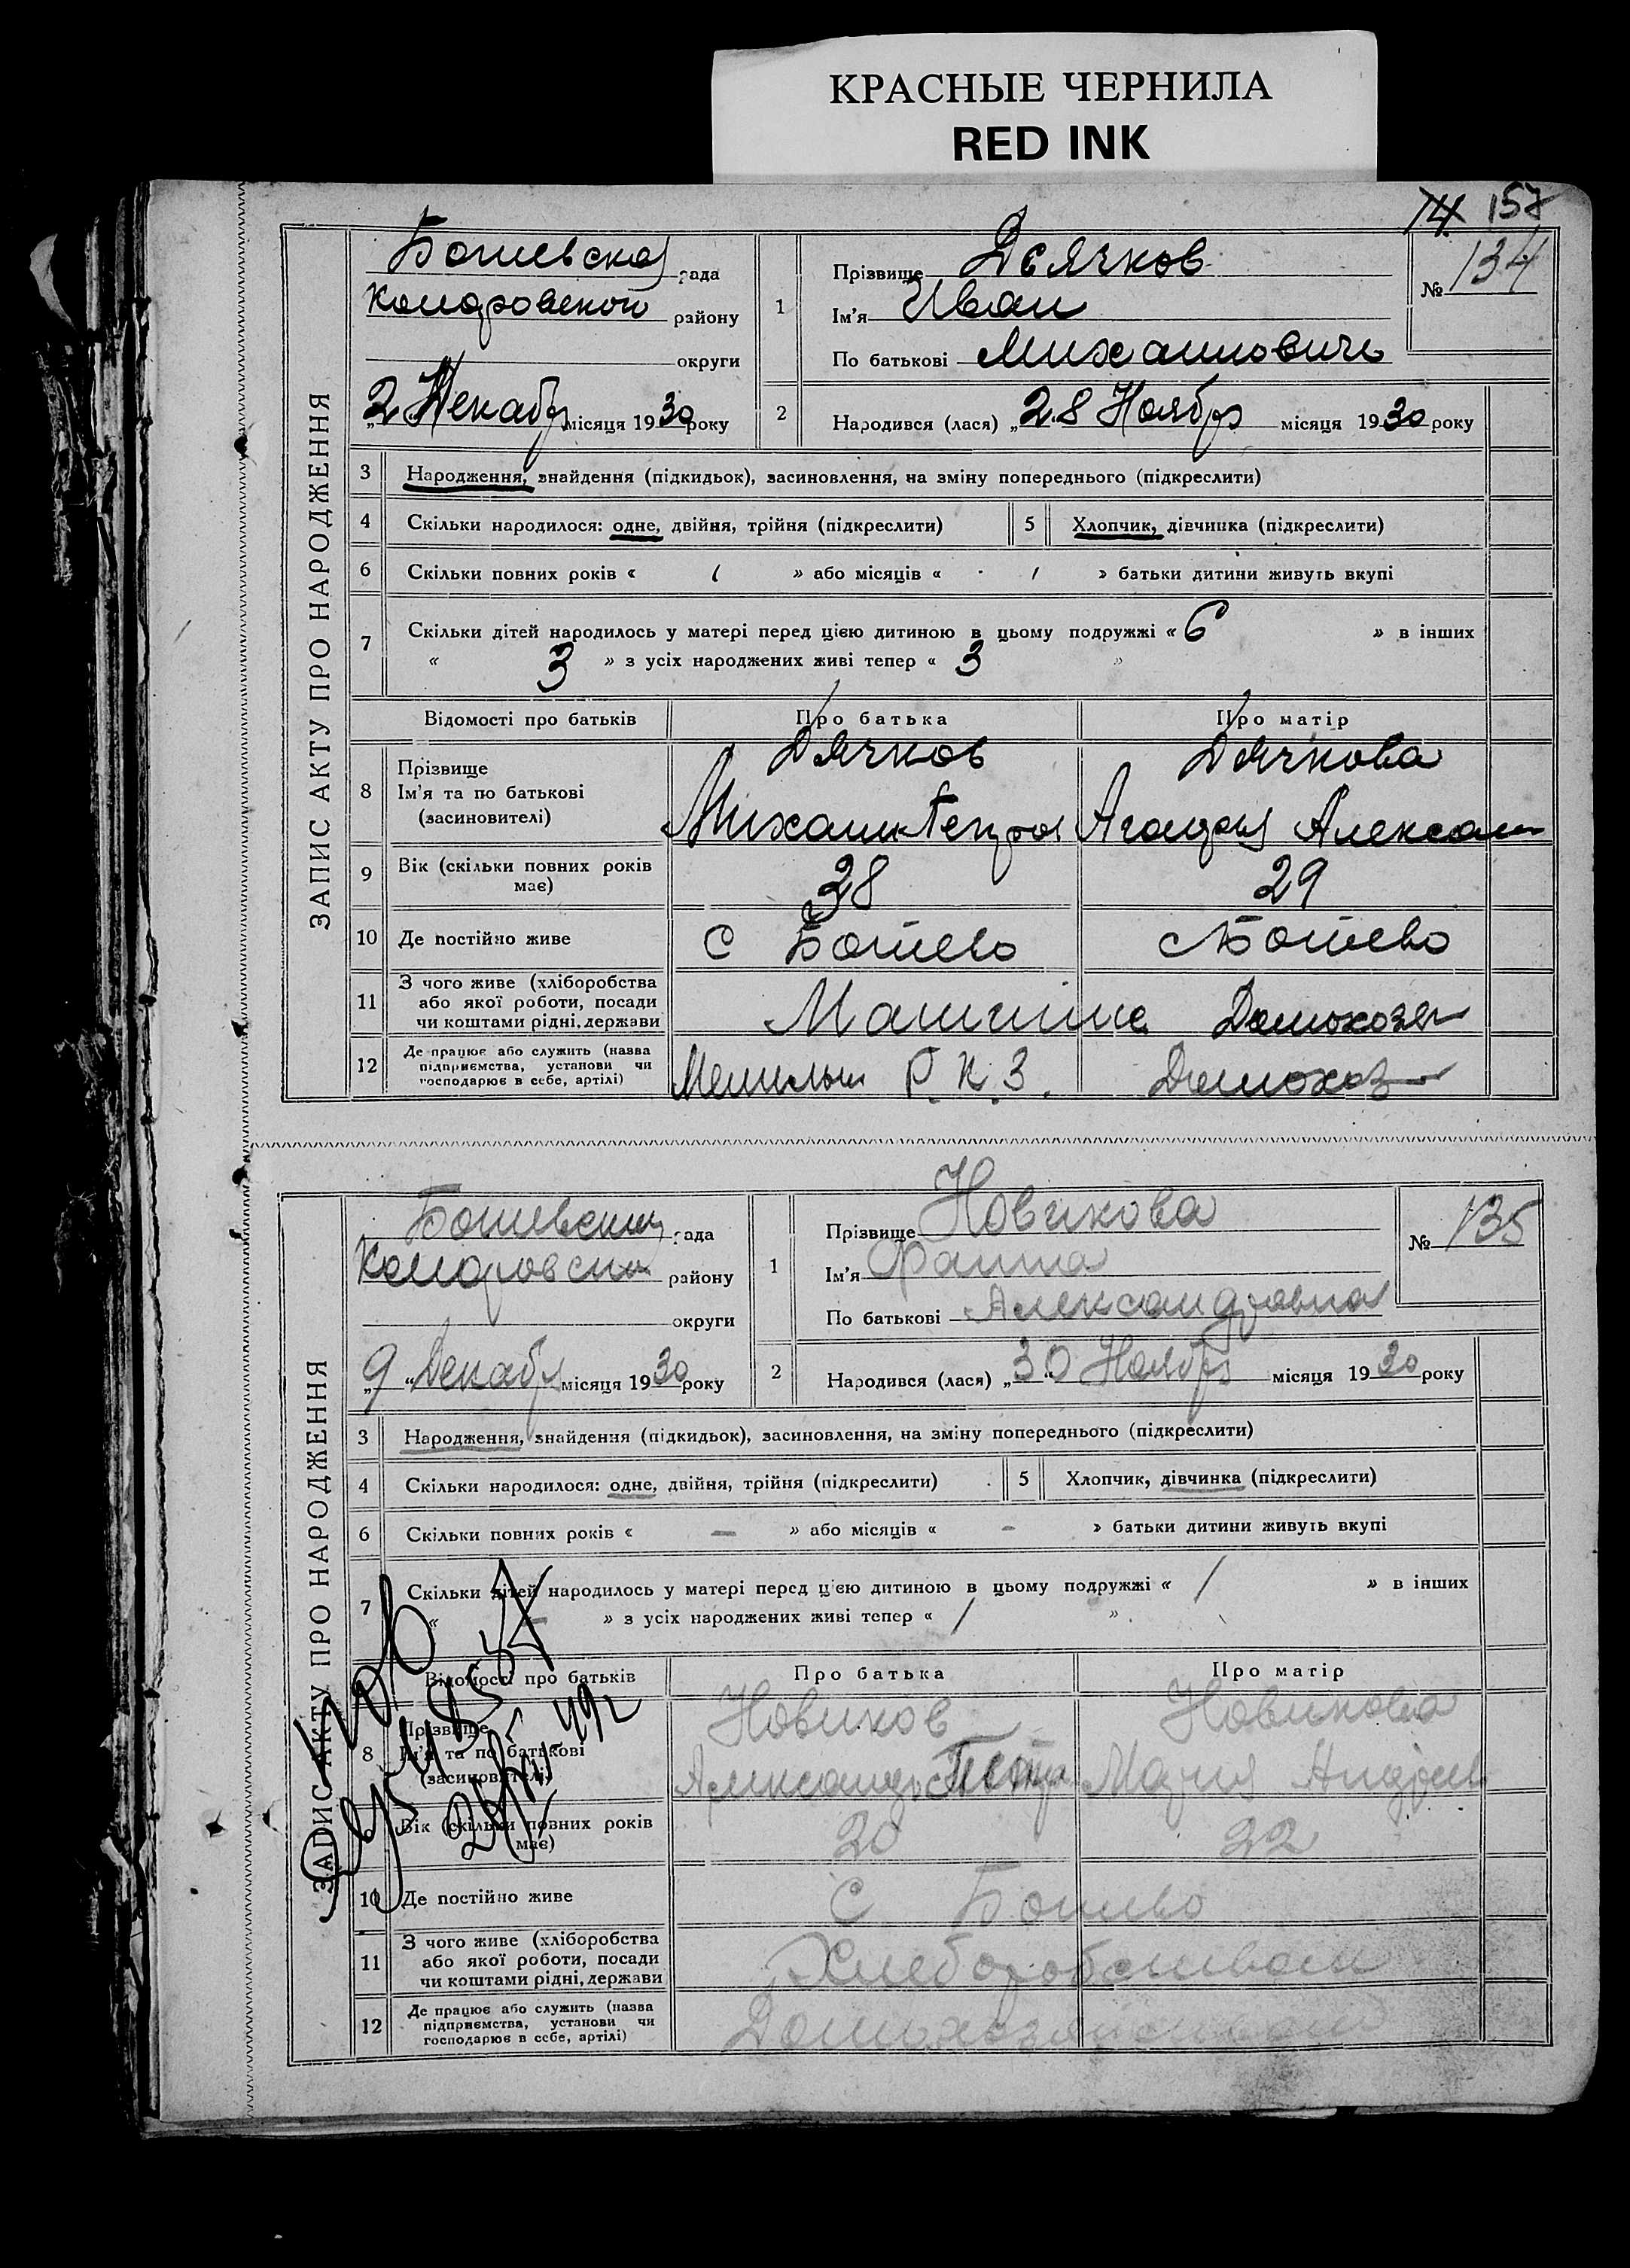 КРАСНЫЕ ЧЕРНИЛА
RED INK
74. 157
ЗАПИС АКТУ ПРО НАРОДЖЕННЯ
рада
району
округи
„2 Декабр місяця 1930 року
1
Прізвище Дьячков
Ім'я Иван
По батькові Михайлович
№ 134
2 Народився (лася) „28 Ноябр місяця 1930 року
3 Народження, знайдення (підкидьок), засиновлення, на зміну попереднього (підкреслити)
4 Скільки народилося: одне, двійня, трійня (підкреслити) 5 Хлопчик, дівчинка (підкреслити)
6 Скільки повних років « / » або місяців « / » батьки дитини живуть вкупі
7 Скільки дітей народилось у матері перед цією дитиною в цьому подружжі « 6 » в інших
« 3 » з усіх народжених живі тепер « 3 »
Відомості про батьків Про батька Про матір
8 Прізвище
Ім'я та по батькові
(засновителі)
Дячков Дячкова
Михаил Петров Агафья Алексан
9 Вік (скільки повних років має) 38 29
10 Де постійно живе С Ботево С Ботево
11 З чого живе (хліборобства
або якої роботи, посади
чи коштами рідні, держави
Домохоз
12 Де працює або служить (назва
підприємства, установи чи
господарює в себе, артілі)
Р. К. З. Домохоз
ЗАПИС АКТУ ПРО НАРОДЖЕННЯ
рада
району
округи
„9" Декабр місяця 1930 року
1
Прізвище Новикова
Ім'я Фаина
По батькові Александровна
№ 135
2 Народився (лася) „30 Ноябр місяця 1930 року
3 Народження, знайдення (підкидьок), засиновлення, на зміну попереднього (підкреслити)
4 Скільки народилося: одне, двійня, трійня (підкреслити) 5 Хлопчик, дівчинка (підкреслити)
6 Скільки повних років « – » або місяців « – » батьки дитини живуть вкупі
7 Скільки дітей народилось у матері перед цією дитиною в цьому подружжі « / » в інших
« – » з усіх народжених живі тепер « / »
Відомості про батьків Про батька Про матір
8 Прізвище
Ім'я та по батькові
(засиновителі)
Новиков Новикова
Александр Петр Мария Андреев
9 Вік (скільки повних років має) 20 22
10 Де постійно живе С Ботево
11 З чого живе (хліборобства
або якої роботи, посади
чи коштами рідні, держави
Хлеборобством
12 Де працює або служить (назва
підприємства, установи чи
господарює в себе, артілі)